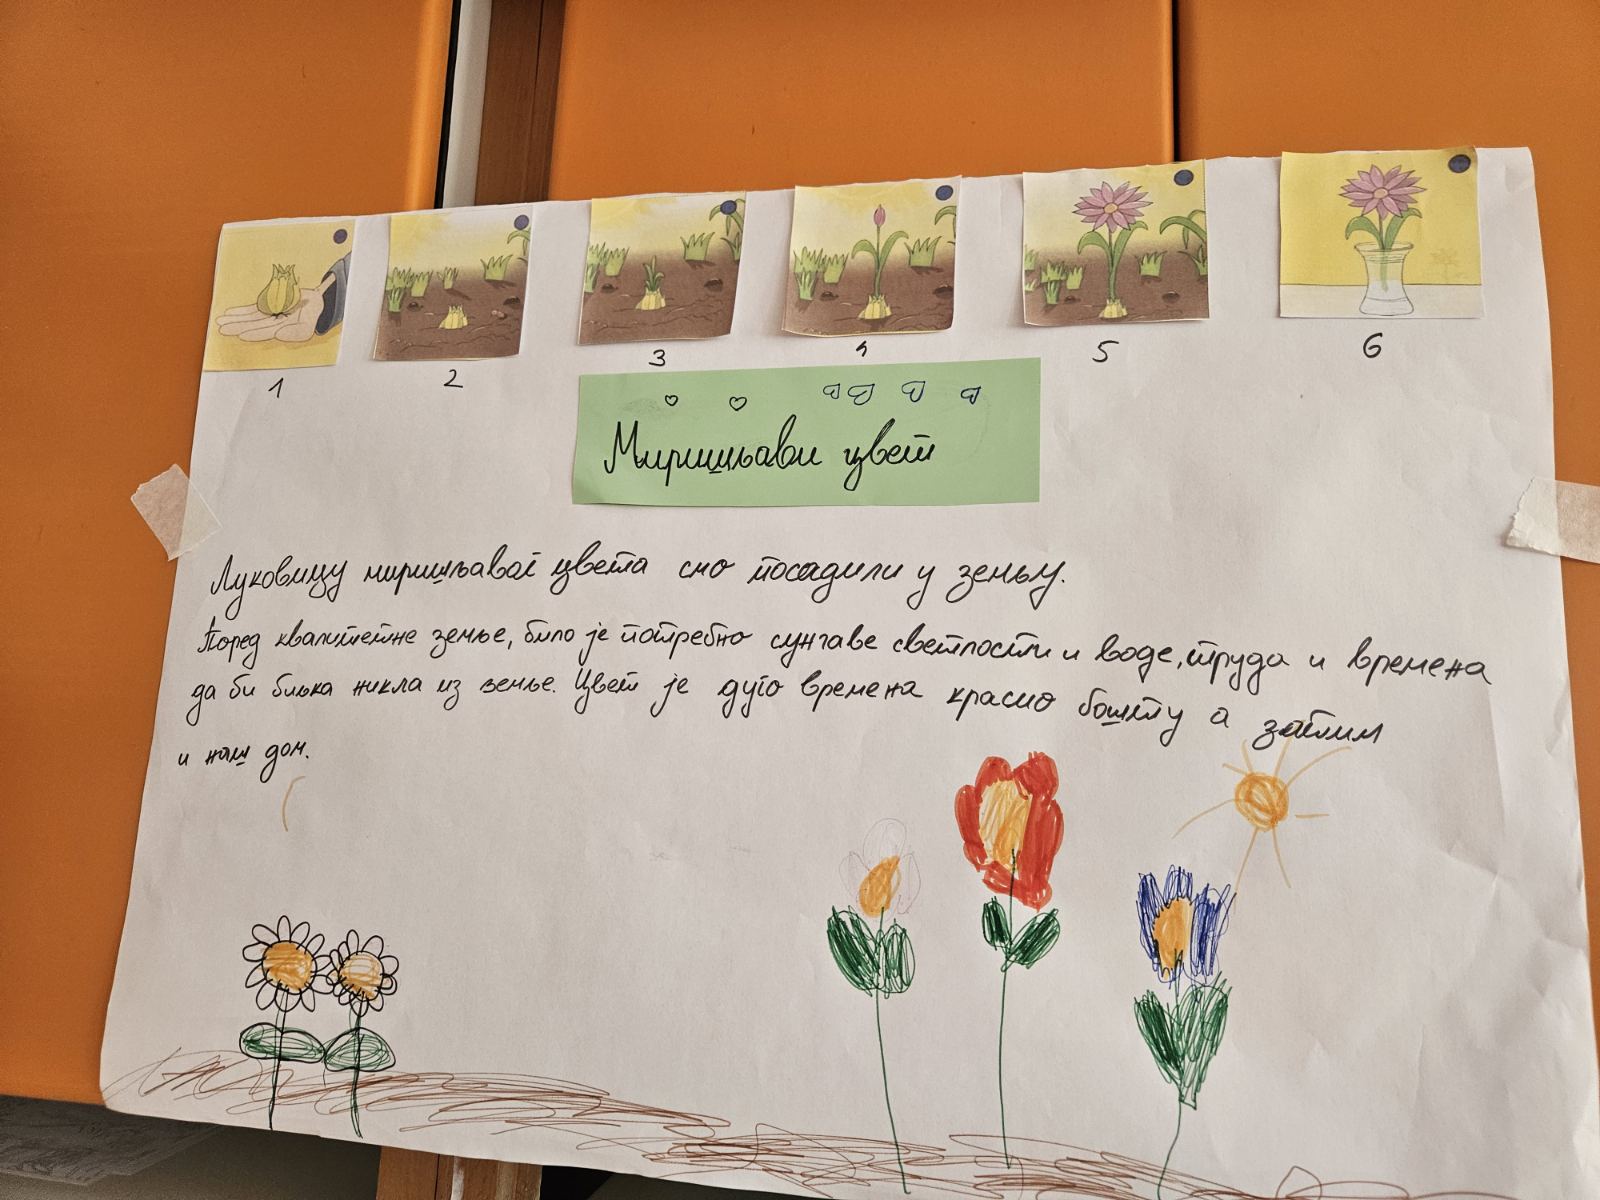 1 2 3 4 5 6
Миришљави цвет
Луковицу миришљавог цвета смо посадили у земљу.
Поред квалитетне земље, било је потребно сунчаве светлости и воде, труда и времена
да би биљка никла из земље. Цвет је дуго времена красио башту а затим
и наш дом.